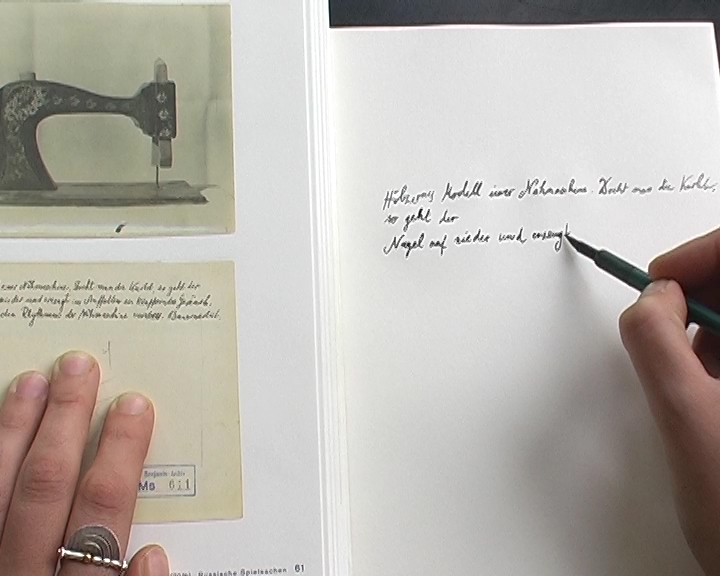 einer Nähmaschine. Dreht man die Kurbel, so geht der
nieder und erzeugt im Auftreffen ein klapperndes Geräusch,
den Rhythmus der Nähmaschine
Benjamin-Archiv
Ms 611
Russische Spielsachen 61
Hölzernes Modell einer Nähmaschine. Dreht man die Kurbel,
so geht der
Nagel auf nieder und erzeugt